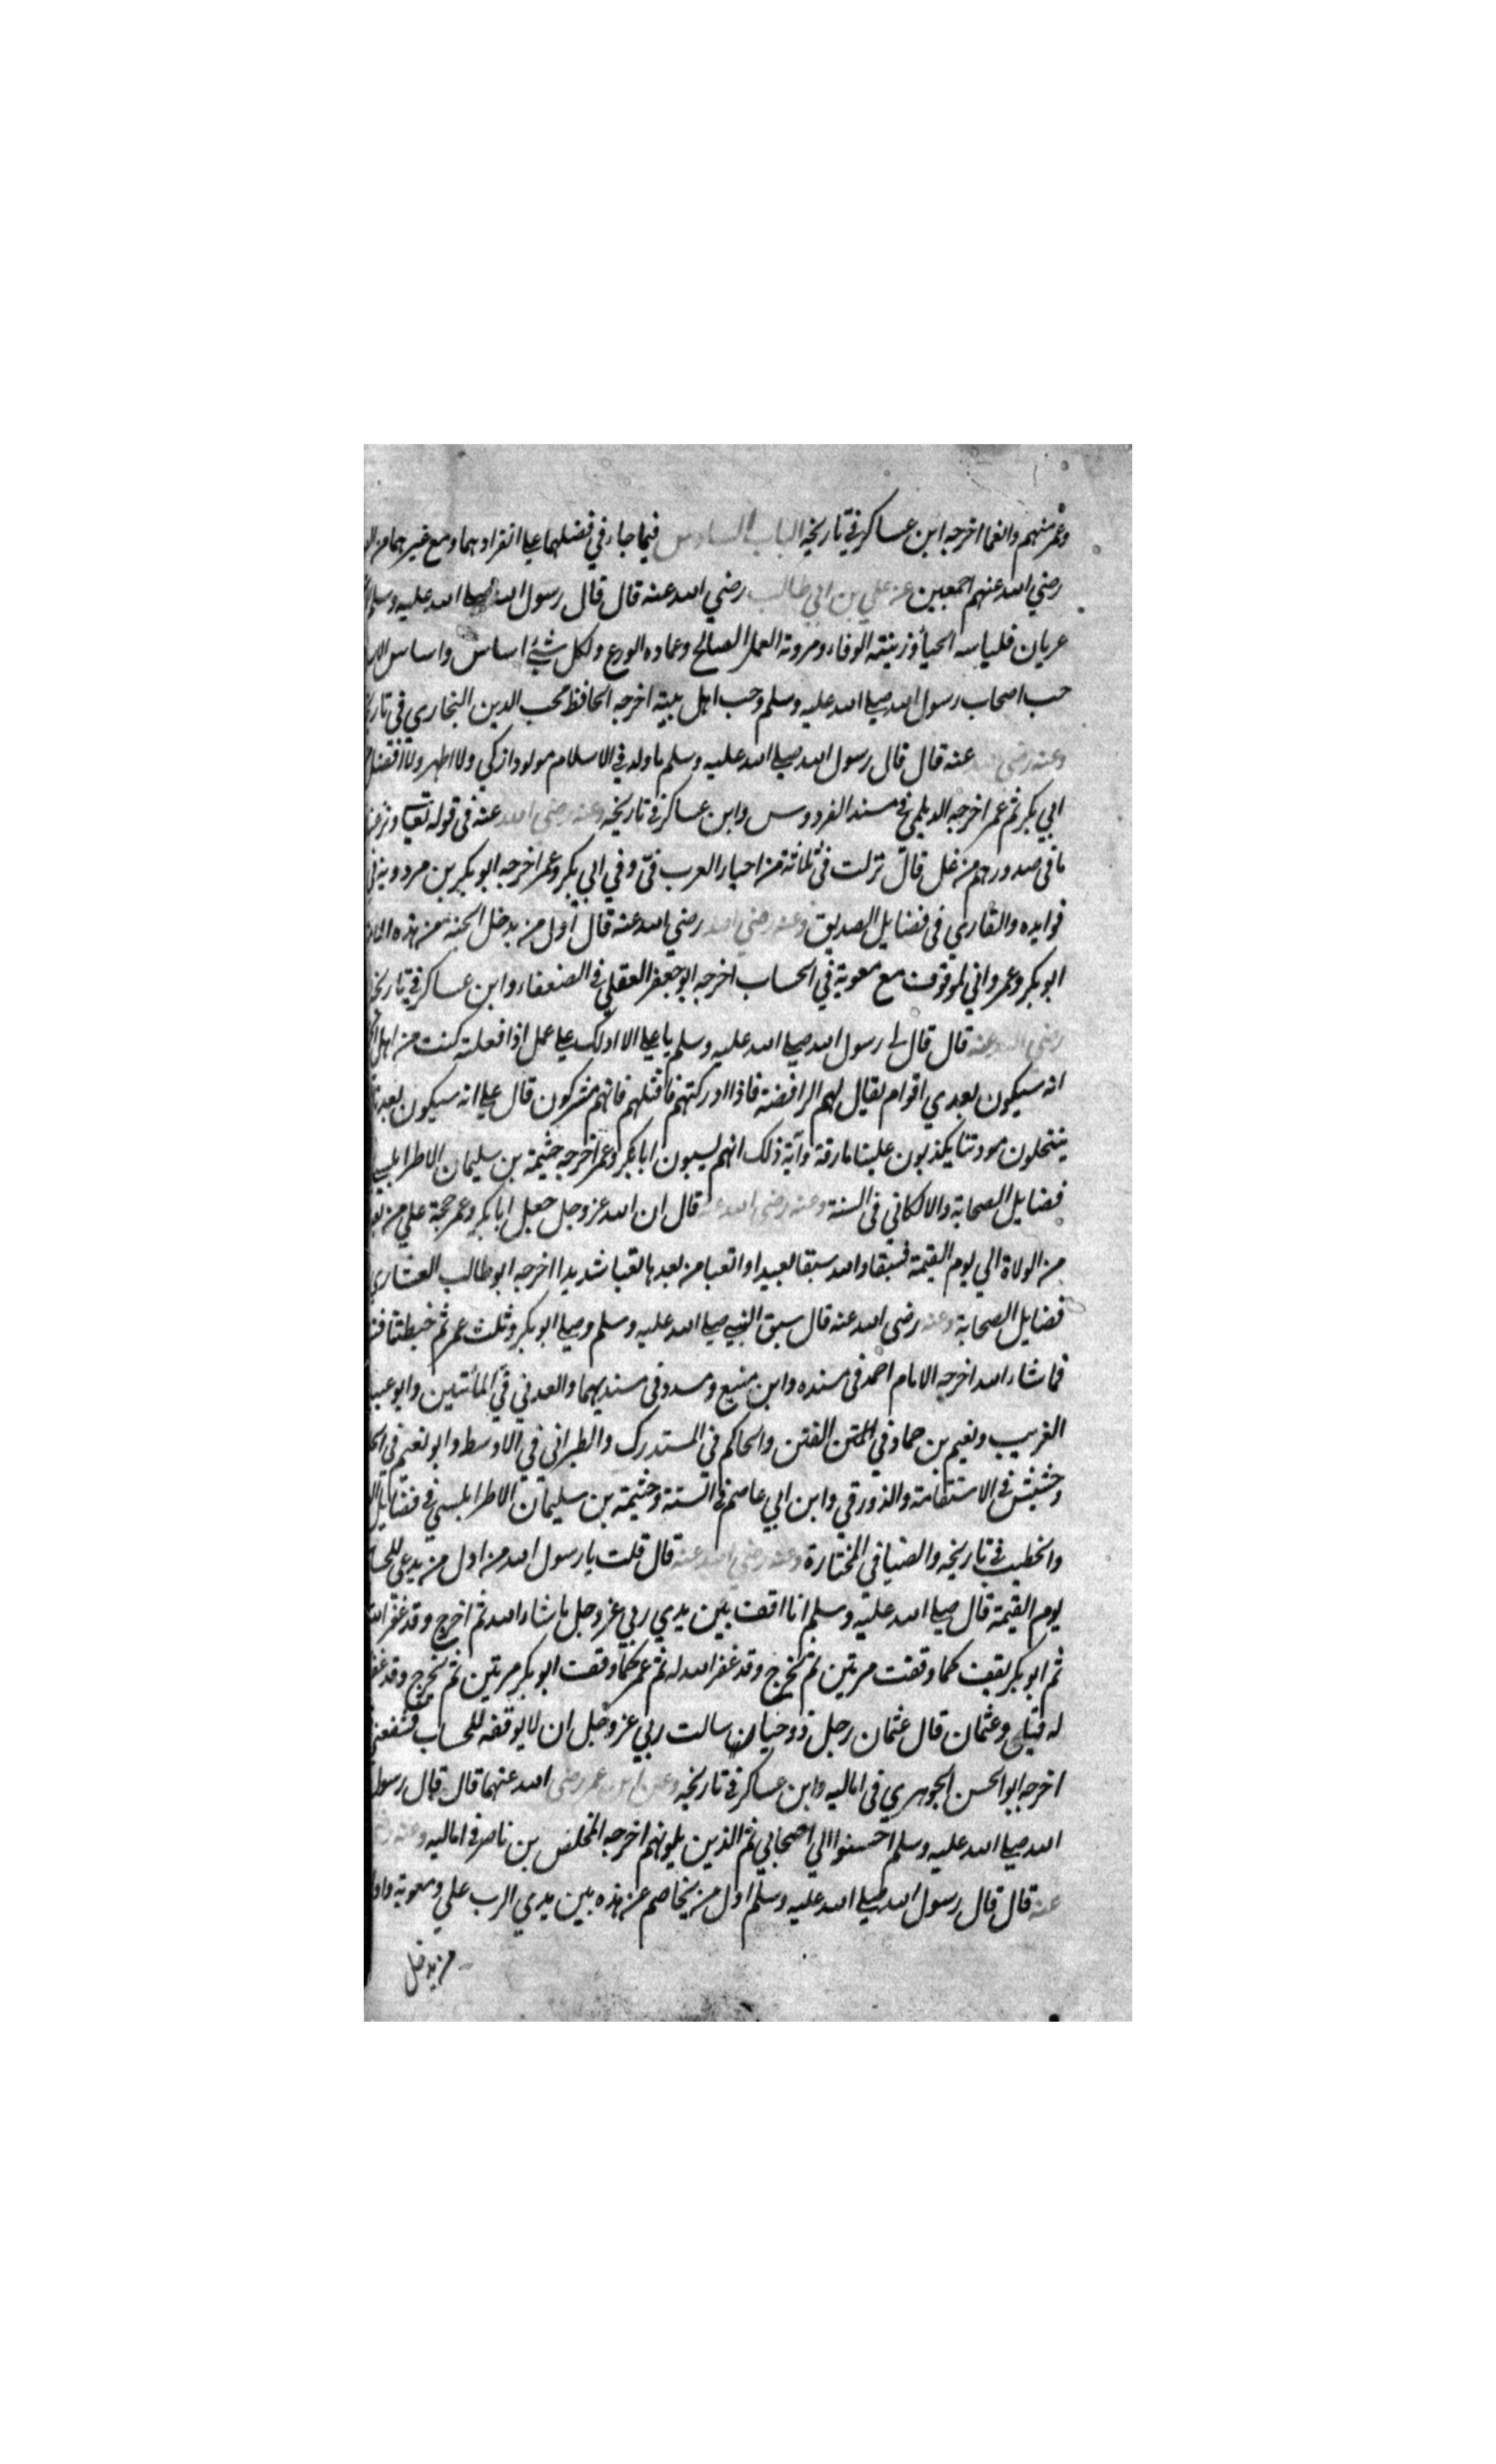 وعمر منهم وانعما اخرجه ابن عساكر في تاريخه الباب السادس فيما جاء في فضلهما على انفرادهما ومع غيرهما من
رضي الله عنهم اجمعين عن علي بن ابي طالب رضي الله عنه قال قال رسول الله صلى الله عليه وسلم
عريان فلباسه الحياء وزينته الوفاء ومروته العمل الصالح وعماده الورع ولكل شئ اساس واساس
حب اصحاب رسول الله صلى الله عليه وسلم وحب اهل بيته اخرجه الحافظ محب الدين النجاري في
وعنه رضي الله عنه قال قال رسول الله صلى الله عليه وسلم ما ولد في الاسلام مولود ازكي ولا اطهر ولا افضل
ابي بكر ثم عمر اخرجه الديلمي في مسند الفردوس وابن عساكر في تاريخه وعنه رضي الله عنه في قوله تعالى ونزعنا
ما في صدورهم من غل قال نزلت في ثلاثة من احياء العرب في وفي ابي بكر وعمر اخرجه ابو بكر بن مردويه في
فوايده والقاري في فضايل الصديق وعنه رضي الله رضي الله عنه قال أول من يدخل الجنة من هذه
ابو بكر وعمر واني لموقوف مع معوية في الحساب اخرجه ابو جعفر العقلي في الضعفاء وابن عساكر في
رضي الله عنه قال قال لي رسول الله صلى الله عليه وسلم يا علي الا ادلك على عمل اذا فعلته كنت من اهل
انه سيكون بعدي اقوام يقال لهم الرافضة فاذا ادركتهم فاقتلهم فانهم مشركون قال علي انه سيكون
ينتحلون مودتنا يكذبون علينا مارقة وآية ذلك انهم يسبون ابا بكر وعمر اخرجه خثيمة بن سليمان الاطرابلسي
فضايل الصحابة والالكاني في السنة وعنه رضي الله عنه قال ان الله عز وجل جعل ابا بكر وعمر حجة علي من
من الولاة الي يوم القيمة فسبقا والله سبقا بعيدا واتعبا من بعدهما تعبا شديدا اخرجه ابو طالب العشاري
فضايل الصحابة وعنه رضي الله عنه قال سبق النبي صلى الله عليه وسلم وصلى ابو بكر وثلث عمر ثم خبطتنا
فماشاء الله اخرجه الامام احمد في مسنده وابن منيع ومسدد في مسنديهما والعدني في المائتين وابو
الغريب ونعيم بن حماد في الفتن والحاكم في المستدرك والطبراني في الاوسط وابو نعيم في
وخشيش في الاستقامة والدورقي وابن ابي عاصم في السنة وخثيمة بن سليمان الاطرابلسي في
والخطيب في تاريخه والضيا في المختارة وعنه رضي الله عنه قال قلت يا رسول الله من اول من يدعى
يوم القيمة قال صلى الله عليه وسلم انا اقف بين يدي ربي عز وجل ما شاء الله ثم اخرج وقد غفر
ثم ابو بكر يقف كما وقفت مرتين ثم يخرج وقد غفر الله له ثم عمر كما وقف ابو بكر مرتين ثم يخرج وقد
له قبلي وعثمان قال عثمان رجل ذو حياء سالت ربي عز وجل ان لا يوقفه للحساب فشفعني
اخرجه ابو الحسن الجوهري في اماليه وابن عساكر في تاريخه وعن ابن عمر رضي الله عنهما قال قال رسول
الله صلى الله عليه وسلم احسنوا الي اصحابي ثم الذين يلونهم اخرجه المخلص بن ناصر في اماليه وعنه
عنه قال قال رسول الله صلى الله عليه وسلم اول من يخاصم عن هذه بين يدي الرب علي ومعوية
من يدخل